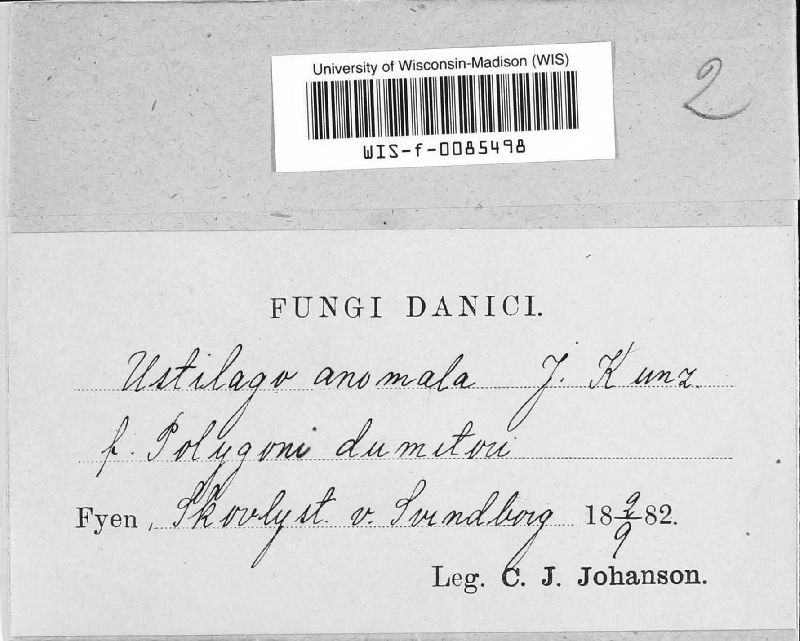 University of Wisconsin-Madison (WIS)
WIS-f-0085498
2
FUNGI DANICI.
Ustilago anomala J. Kunz.
f. Polygoni dumetori
Fyen, Skovlyst v. Svendborg 18 9/9 82.
Leg. C. J. Johanson.